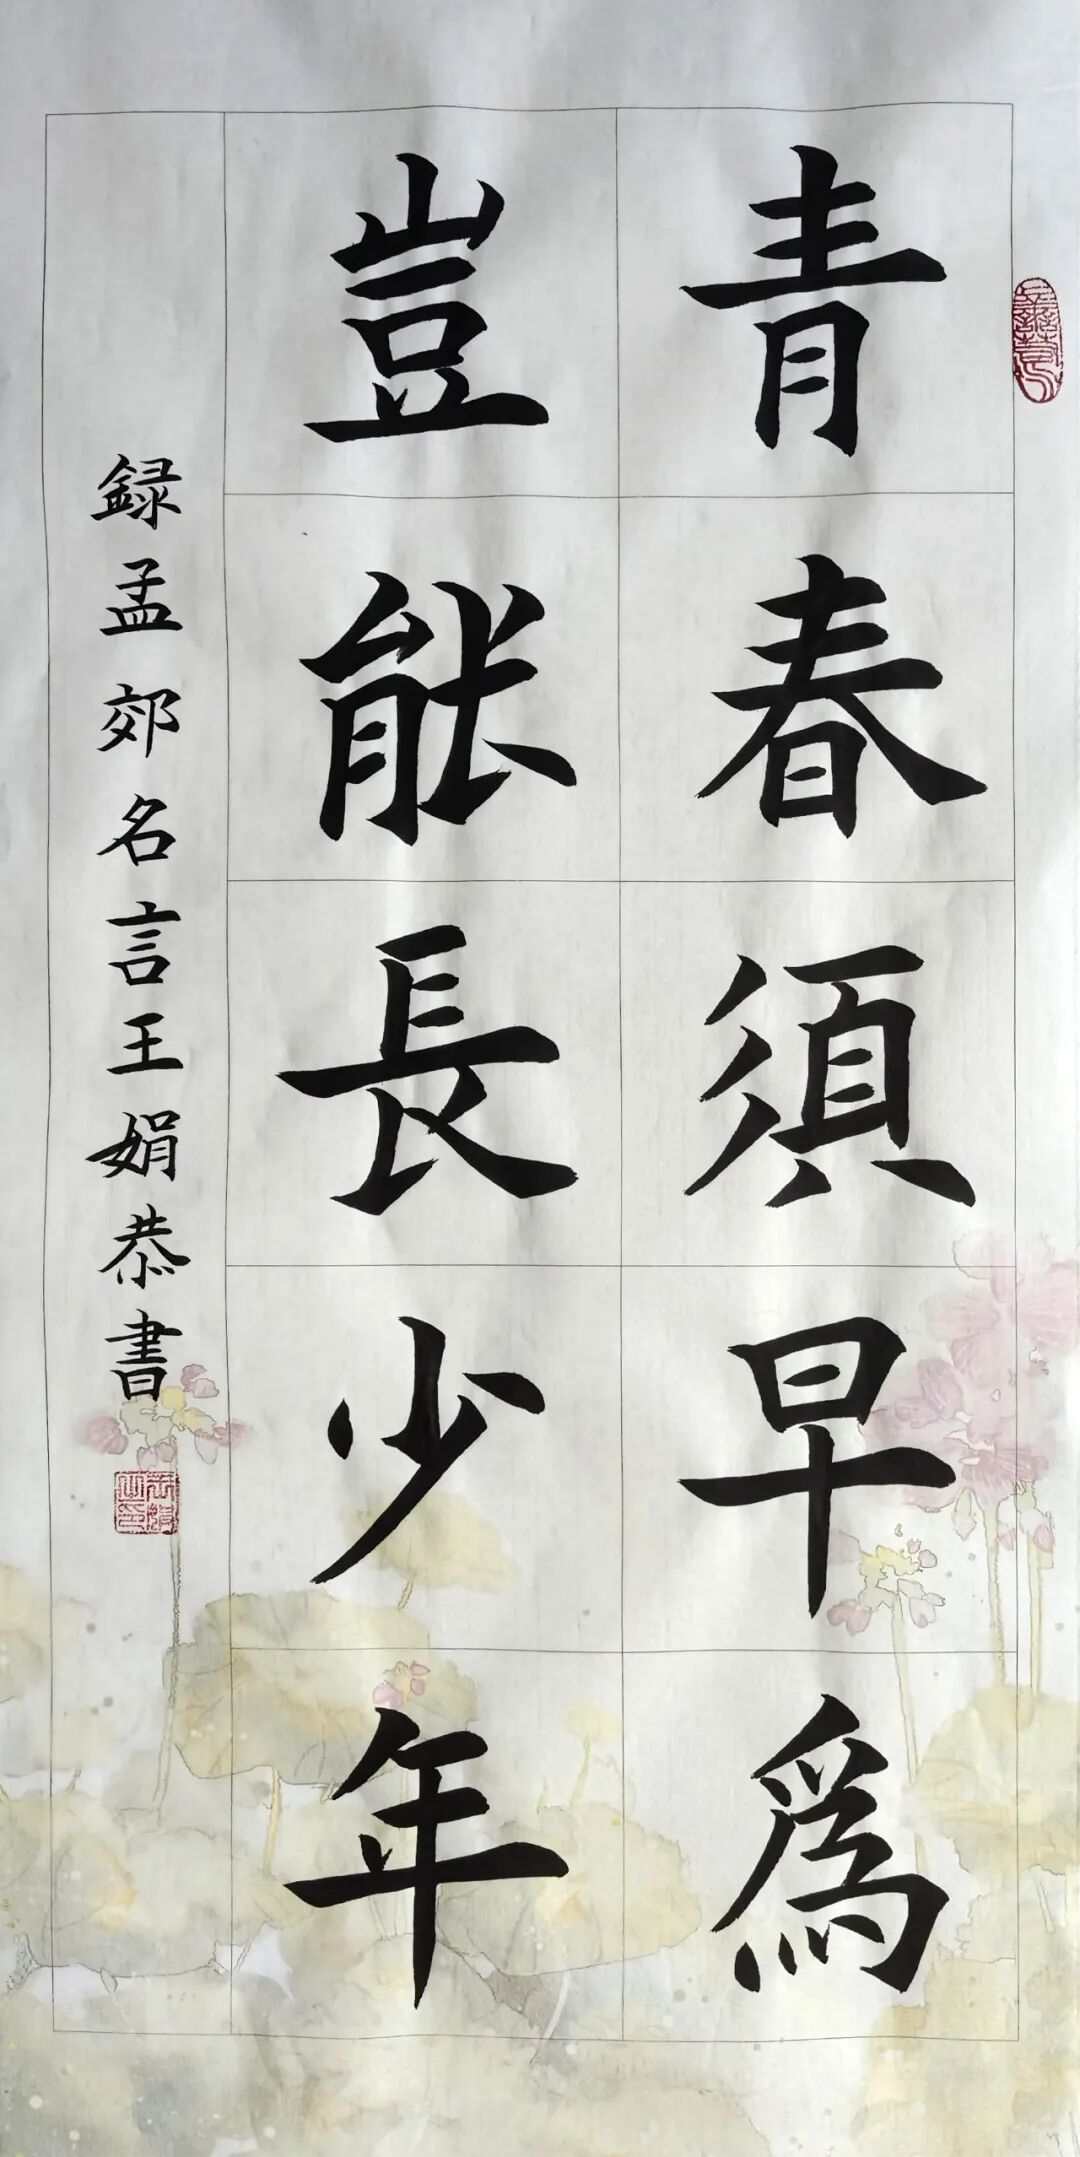 青春須早為
豈能長少年
録孟郊名言王娟恭書